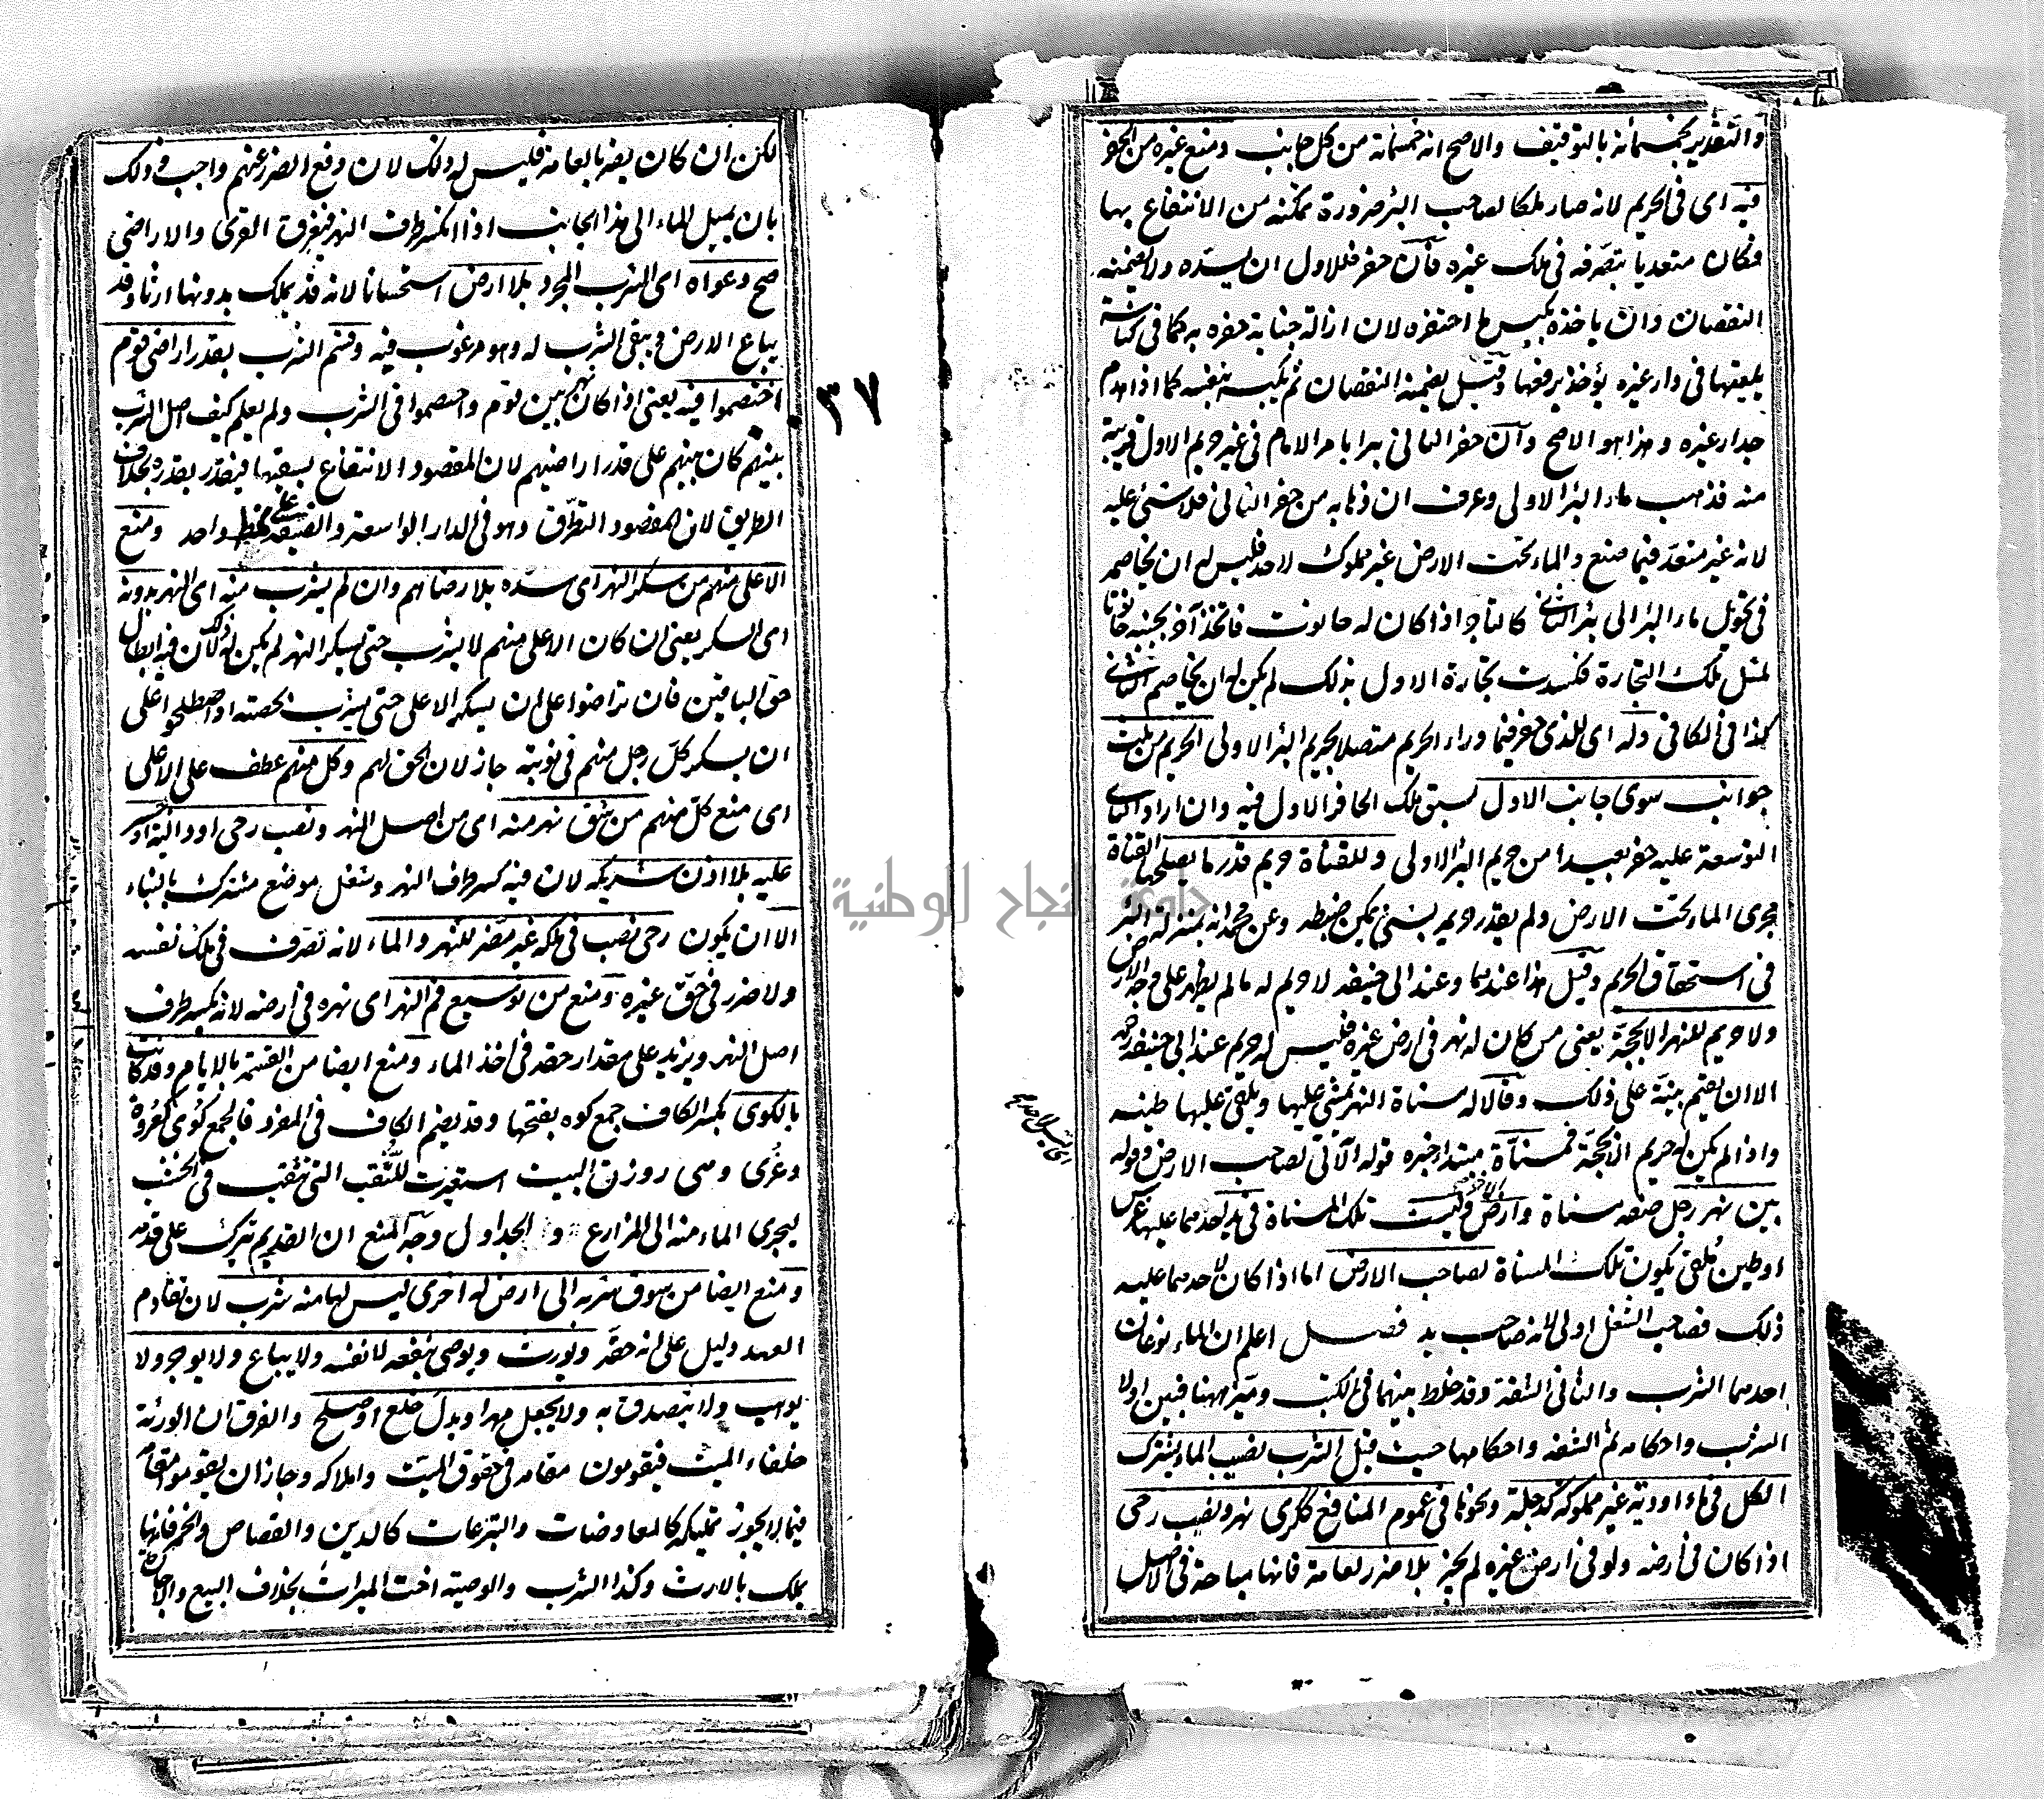 والتقدير بخمسمائة بالتوقيف والاصح انه خمسمائة من كل جانب ومنع غيره من الحفر
فيه اى فى الحريم لانه صار ملكا لصاحب البئر ضرورة تمكنه من الانتفاع بها
فكان متعديا بتصرفه فى ملك غيره فان حفر فللاول ان يسده ولا يضمنه
النقصان وان ياخذه بكبس ما احتفره لان ازالة جناية حفره به كما فى كناسة
يلقيها فى دار غيره يؤخذ برفعها وقيل يضمنه النقصان ثم يكبسه بنفسه كما اذا هدم
جدار غيره وهذا هو الاصح وان حفر الثانى بئرا بامر الامام فى غير حريم الاول قريبة
منه فذهب ماء البئر الاولى وعرف ان ذهابه من حفر الثانى فلا شئ عليه
لانه غير متعد فيما صنع والماء تحت الارض غير مملوك لاحد فليس له ان يخاصمه
فى تحويل ماء البئر الى بئر الثانى كالتاجر اذا كان له حانوت فاتخذ آخر بجنبه حانوتا
لمثل تلك التجارة فكسدت تجارة الاول بذلك لم يكن له ان يخاصم الثانى
كذا فى الكافى وله اى للذى حفر فيما وراء الحريم متصلا بحريم البئر الاولى الحريم من ثلث
جوانب سوى جانب الاول لسبق ملك الحافر الاول فيه وان اراد الثانى
التوسعة عليه حفر بعيدا من حريم البئر الاولى وللقناة حريم قدر ما يصلحها القناة
مجرى الماء تحت الارض ولم يقدر حريمه بشئ يمكن ضبطه وعن محمد انه بمنزلة البئر
فى استحقاق الحريم وقيل هذا عندهما وعند ابى حنيفة لا حريم له ما لم يظهر على وجه الارض
ولا حريم للنهر الا بحجة يعنى من كان له نهر فى ارض غيره فليس له حريم عند ابى حنيفة رحمه
الا ان يقيم بينة على ذلك وقالا له مسناة النهر يمشى عليها ويلقى عليها طينه
واذا لم يكن له حريم الا بحجة فمسناة مبتدا خبره قوله الآتى لصاحب الارض وقوله
بين نهر رجل صفة مسناة وارض لآخر وليست تلك المسناة فى يد احدهما عليها غرس
او طين ملقى يكون تلك المسناة لصاحب الارض اما اذا كان لاحدهما عليه
ذلك فصاحب الشغل اولى لانه صاحب يد فصل اعلم ان الماء نوعان
احدهما الشرب والثانى الشفة وقد خلط بينهما فى الكتب وميز ههنا فبين اولا
الشرب واحكامه ثم الشفة واحكامها حيث قيل الشرب نصيب الماء يشترك
الكل فى ماء اودية غير مملوكة كدجلة ونحوها فى عموم المنافع ككرى نهر ونصب رحى
اذا كان فى ارضه ولو فى ارض غيره لم يجز بلا ضرر لعامة فانها مباحة فى الاصل
لكن ان كان يضر بالعامة فليس له ذلك لان دفع الضرر عنهم واجب وذلك
بان يميل الماء الى هذا الجانب اذا انكسر طرف النهر فيغرق القرى والاراضى
صح دعواه اى الشرب المجرد بلا ارض استحسانا لانه قد يملك بدونها ارثا وقد
يباع الارض ويبقى الشرب له وهو مرغوب فيه وقسم الشرب بقدر اراضى قوم
اختصموا فيه يعنى اذا كان نهر بين قوم واختصموا فى الشرب ولم يعلم كيف اصل الشرب
بينهم كان بينهم على قدر اراضيهم لان المقصود الانتفاع بسقيها فيقدر بقدره بخلاف
الطريق لان المقصود التطرق وهو فى الدار الواسعة والضيقة على نمط واحد ومنع
الاعلى منهم من سكر النهر اى سده بلا رضاهم وان لم يشرب منه اى النهر بدونه
اى السكر يعنى ان كان الاعلى منهم لا يشرب حتى يسكر النهر لم يكن له ذلك لان فيه ابطال
حق الباقين فان تراضوا على ان يسكر الاعلى حتى يشرب بحصته او اصطلحوا على
ان يسكر كل رجل منهم فى نوبته جاز لان الحق لهم وكل منهم عطف على الاعلى
اى منع كل منهم من شق نهر منه اى من اصل النهر ونصب رحى او دالية او جسر
عليه بلا اذن شريكه لان فيه كسر طرف النهر وشغل موضع مشترك بالبناء
الا ان يكون رحى نصب فى ملكه غير مضر للنهر والماء لانه تصرف فى ملك نفسه
ولا ضرر فى حق غيره ومنع من توسيع فم النهر اى نهره فى ارضه لانه يكسر طرف
اصل النهر ويزيد على مقدار حقه فى أخذ الماء ومنع ايضا من القسمة بالايام وقد كانت
بالكوى بكسر الكاف جمع كوة بفتحها وقد يضم الكاف فى المفرد فالجمع كوى كعروة
وعرى وهى روزن البيت استعيرت للثقب التى تثقب فى الخشب
ليجرى الماء منه الى المزارع و الجداول وجه المنع ان القديم يترك على قدمه
ومنع ايضا من سوق شربه الى ارض له اخرى ليس لها منه شرب لان تقادم
العهد دليل على انه حقه ويورث ويوصى بنفعه لا نفسه ولا يباع ولا يوجر ولا
يوهب ولا يتصدق به ولا يجعل مهرا وبدل خلع او صلح والفرق ان الورثة
خلفاء الميت فيقومون مقامه فى حقوق الميت واملاكه وجاز ان يقوموا مقامه
فيما لا يجوز تمليكه كالمعاوضات والتبرعات كالدين والقصاص والخمر فانها
يملك بالارث وكذا الشرب والوصية اخت الميراث بخلاف البيع والاجارة
٣٧